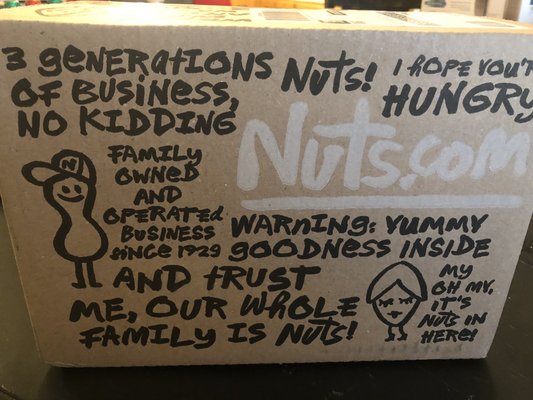 3 generations
of Business,
NO KIDDING
Nuts!
I HOPE YOU'R
HUNGRY
Nuts.com
N
FAMILY
OWNED
AND
OPERATED
BUSINESS
SINCE 1929
WARNING: YUMMY
goodness INSIDE
AND trust
ME, OUR WHOLE
FAMILY IS Nuts!
MY
OH MY,
IT'S
Nuts IN
HERE!